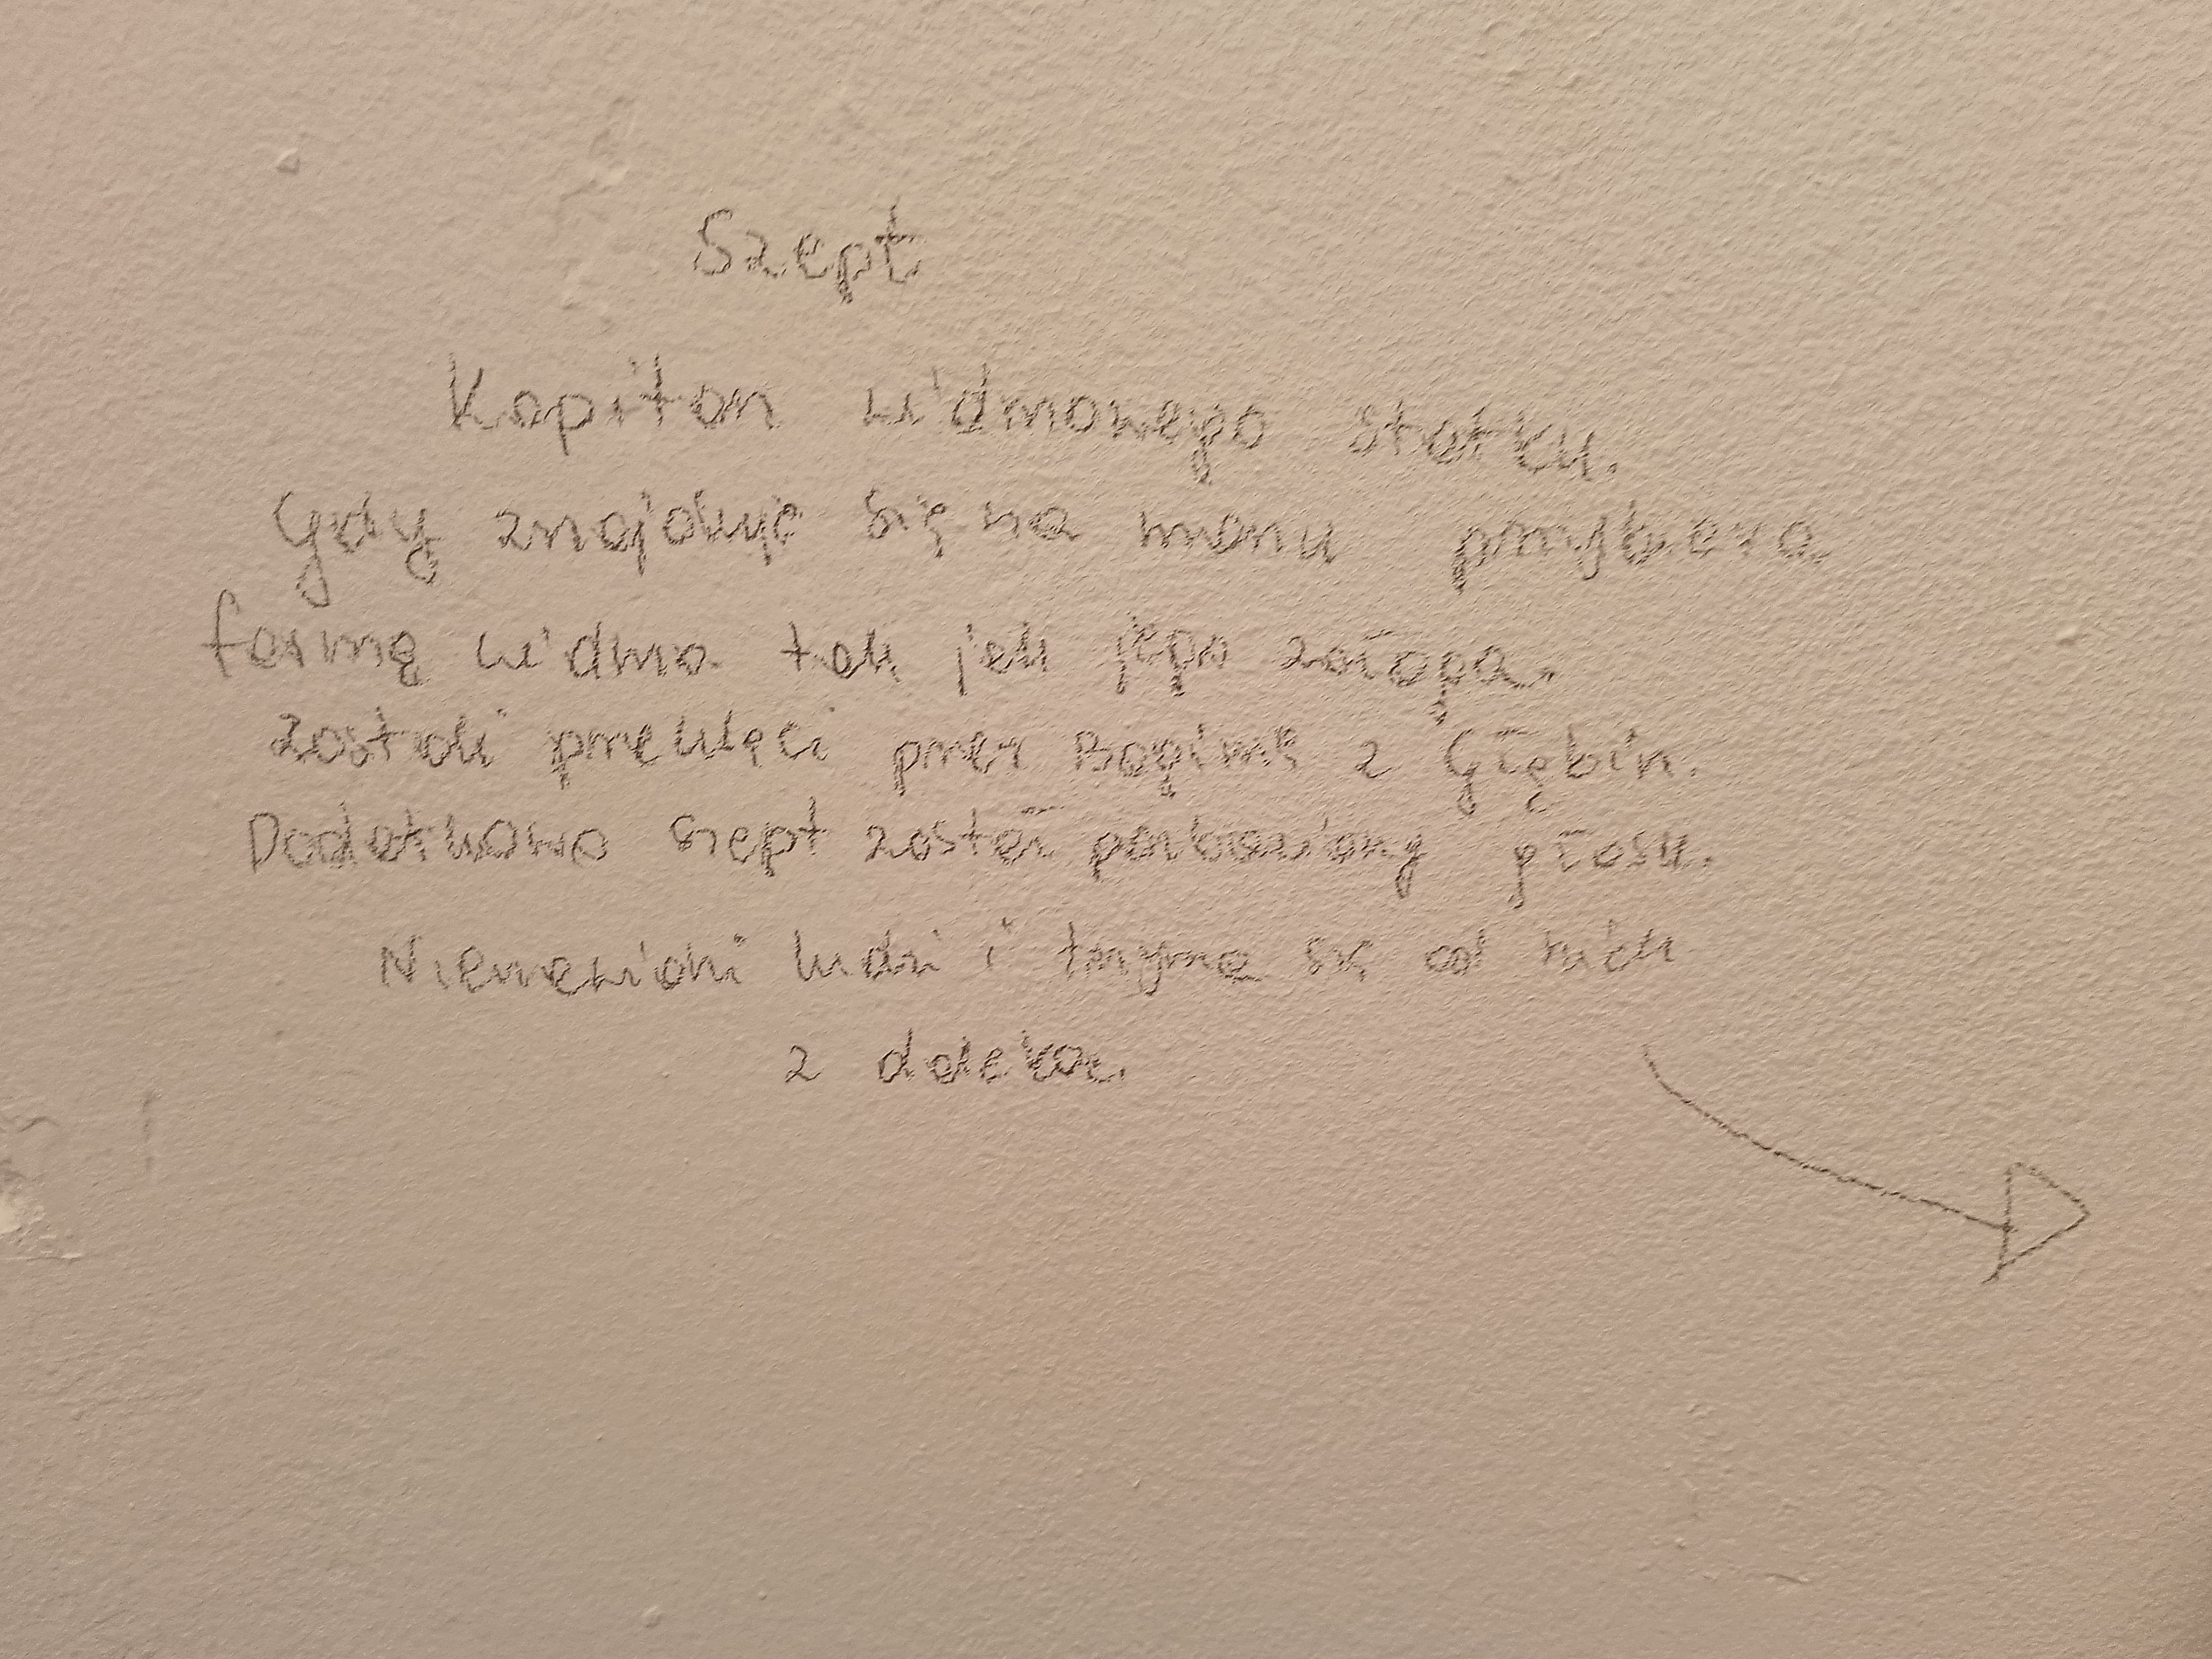 Szept
Kapitan widmowego statku.
Gdy znajduje się na morzu przybiera
formę widma tak jak jego załoga.
Zostali przeklęci przez Boginię z Głębin.
Dodatkowo szept został pozbawiony głosu.
Nienawidzi ludzi i trzyma się od nich
z daleka.